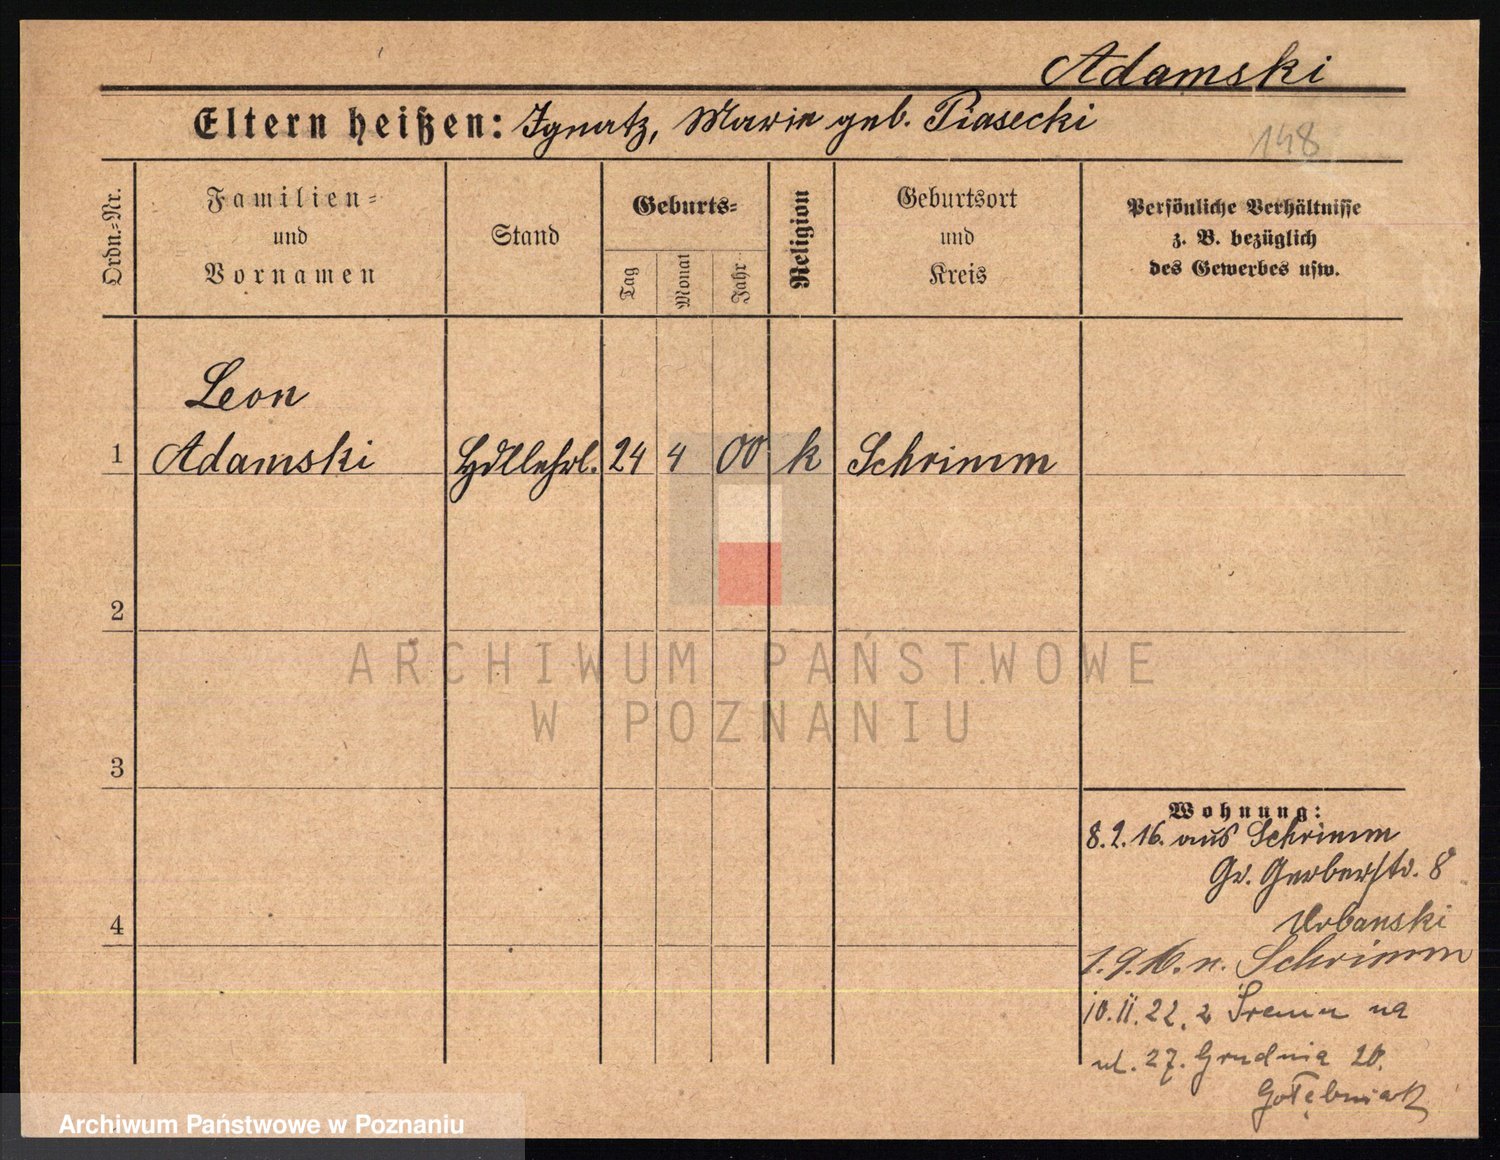 Adamski
Eltern heißen: Ignatz, Marie geb. Piasecki
148
Ordn.-Nr.
Familien-
und
Vornamen
Stand
Geburts-
Tag
Monat
Jahr
Religion
Geburtsort
und
Kreis
Persönliche Verhältnisse
z. B. bezüglich
des Gewerbes usw.
Leon
1 Adamski Hdllehrl. 24 4 00 k Schrimm
2
ARCHIWUM PAŃSTWOWE
W POZNANIU
3
Wohnung:
8.2.16. aus Schrimm
Gr. Gerberstr. 8
Urbanski
4
1.9.16. n. Schrimm
10.II.22. z Śremu na
ul. 27. Grudnia 20.
Gołębniak
Archiwum Państwowe w Poznaniu